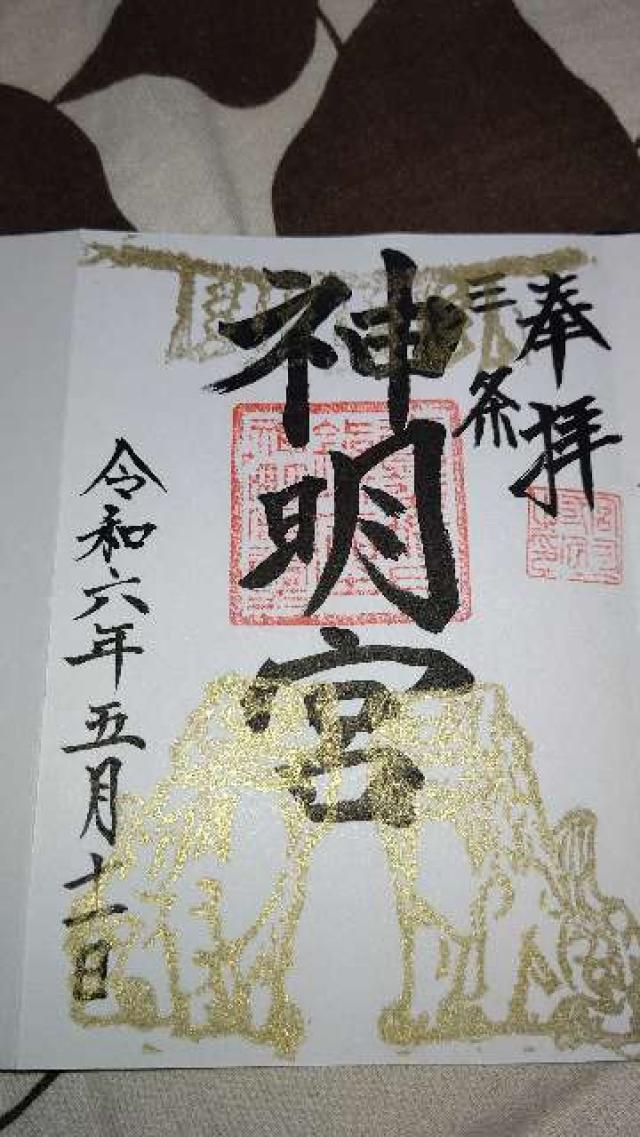 奉拝
三条
神明宮
令和六年五月十一日